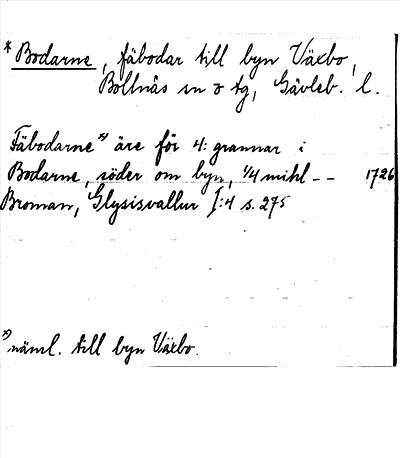 * Bodarne, fäbodar till byn Växbo,
Bollnäs sn o tg, Gävleb. l.
Fäbodarne *) äre för 4: grannar i
Bodarne, söder om byn, 1/4 mihl -- 1726
Broman, Glysisvallur I:4 s. 275
*) näml. till byn Växbo.